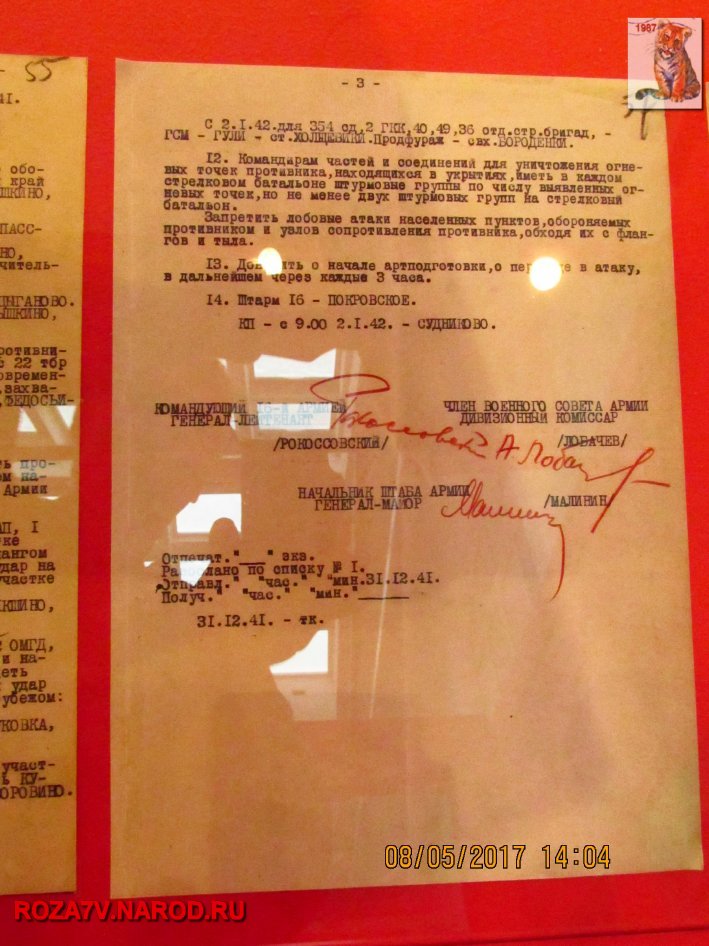 55
41.
обо-
край
ШКИНО,
ПАСС-
НО,
читель-
ЦЫГАНОВО.
ЫШКИНО,
ротивни-
с 22 тбр
овремен-
,захва-
,ФЕДОСЬИ-
ть про-
ом на-
Армии
АП, I
ке
хангом
удар на
участке
КШИНО,
с ОМГД,
и на-
еть
удар
убежом:
КОВКА,
участ-
ь КУ-
ОРОВИНО.
- 3 -
С 2.I.42.для 354 сд,2 ГКК,40,49,36 отд.стр.бригад, -
ГСМ - ГУЛИ - ст.ХОЛЩЕВИКИ.Продфураж - свх.БОРОДЕНКИ.
12. Командирам частей и соединений для уничтожения огне-
вых точек противника,находящихся в укрытиях,иметь в каждом
стрелковом батальоне штурмовые группы по числу выявленных ог-
невых точек,но не менее двух штурмовых групп на стрелковый
батальон.
Запретить лобовые атаки населенных пунктов,обороняемых
противником и узлов сопротивления противника,обходя их с флан-
гов и тыла.
13. о начале артподготовки,о в атаку,
в дальнейшем через каждые 3 часа.
14. Штарм 16 - ПОКРОВСКОЕ.
КП - с 9.00 2.I.42. - СУДНИКОВО.
КОМАНДУЮЩИЙ 16-й АРМИЕЙ
ГЕНЕРАЛ-ЛЕЙТЕНАНТ
/РОКОССОВСКИЙ/
Рокоссовский
ЧЛЕН ВОЕННОГО СОВЕТА АРМИИ
ДИВИЗИОННЫЙ КОМИССАР
/ЛОБАЧЕВ/
А Лобач
НАЧАЛЬНИК ШТАБА АРМИИ
ГЕНЕРАЛ-МАЙОР
Малинин
/МАЛИНИН/
Отпечат."__" экз.
Разослано по списку № I.
Отправл." "час." "мин.31.12.41.
Получ." "час." "мин."
31.12.41. - тк.
1987
08/05/2017 14:04
ROZA7V.NAROD.RU